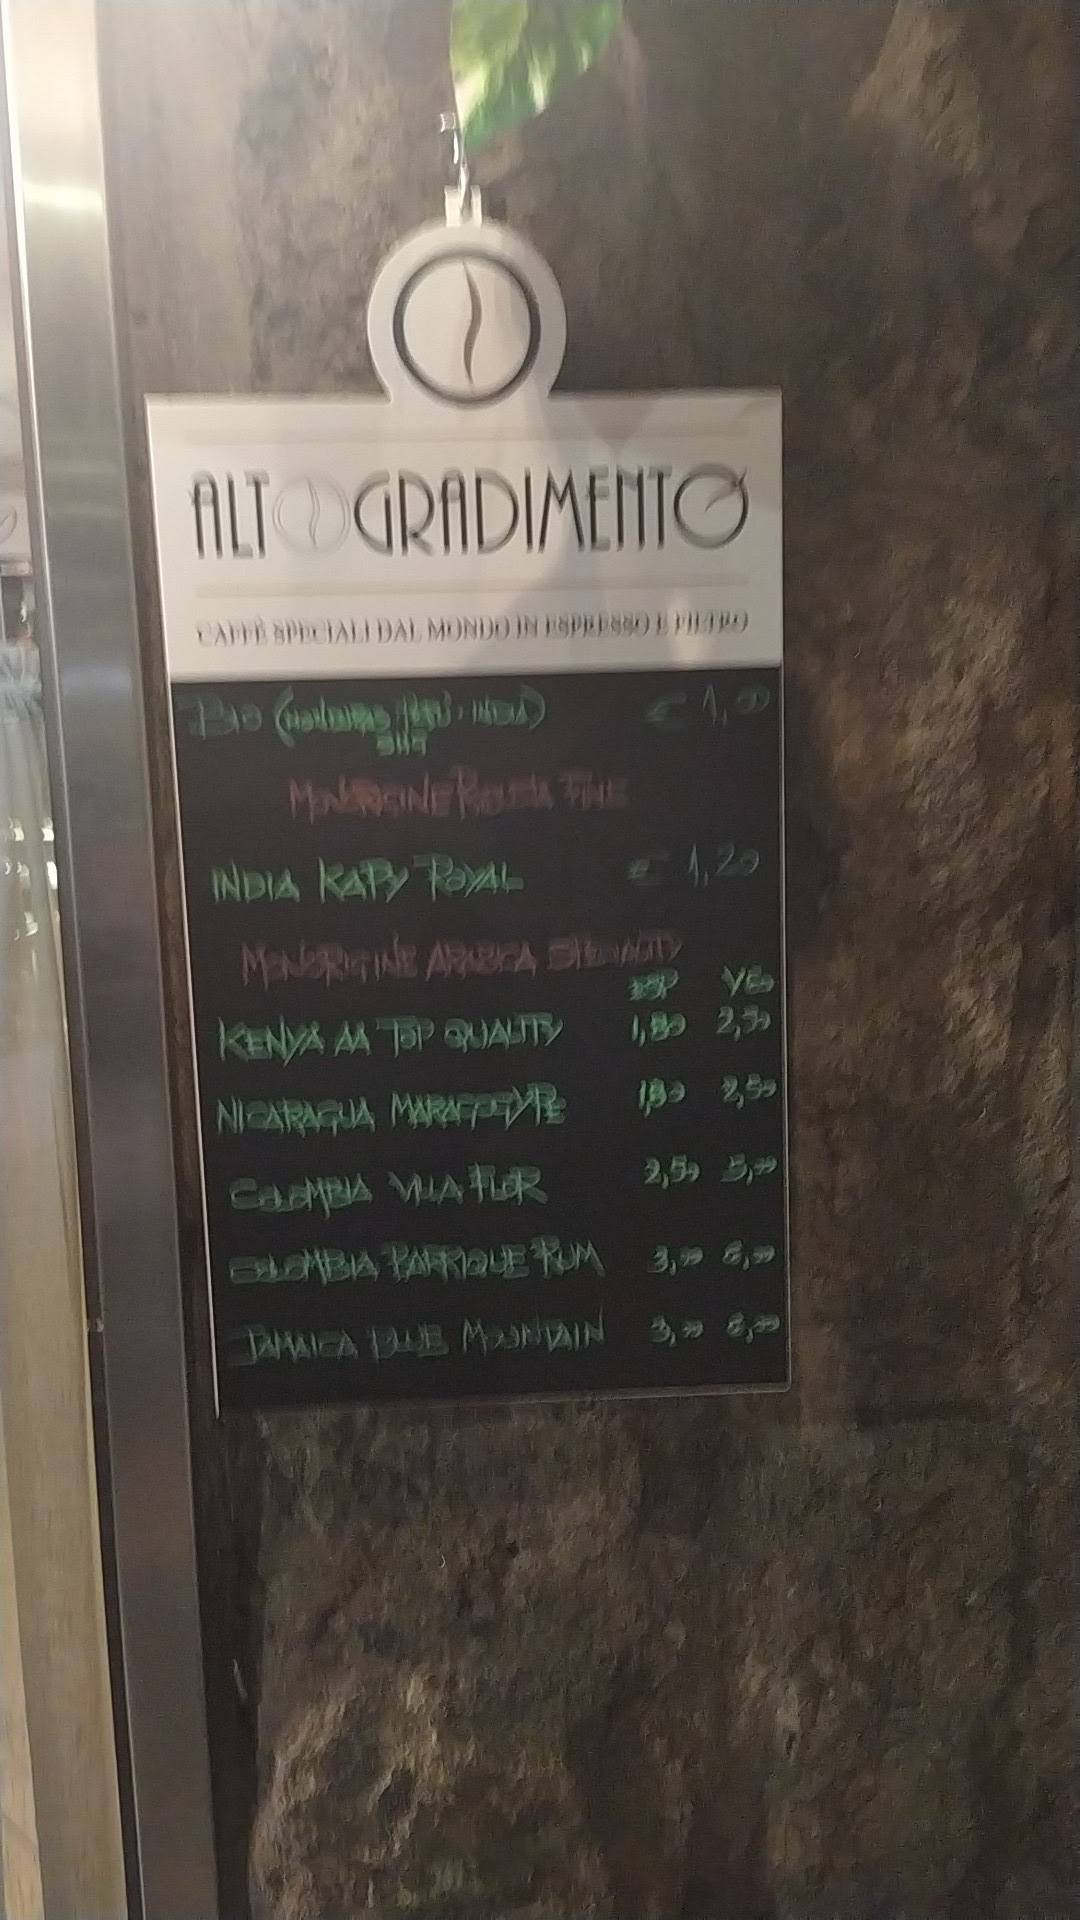 ALTOGRADIMENTO
CAFFÈ SPECIALI DAL MONDO IN ESPRESSO E FILTRO
BIO (HONDURAS PERÙ INDIA) € 1,00
MONORIGINE ROBUSTA FINE
INDIA KAPY ROYAL € 1,20
MONORIGINE ARABICA SPECIALITY
ESP V60
KENYA AA TOP QUALITY 2,50
NICARAGUA MARAGOGYPE 2,50
COLOMBIA VILLA FLOR 2,50 5,00
COLOMBIA BARRIQUE RUM 3,00
JAMAICA BLUE MOUNTAIN 3,00